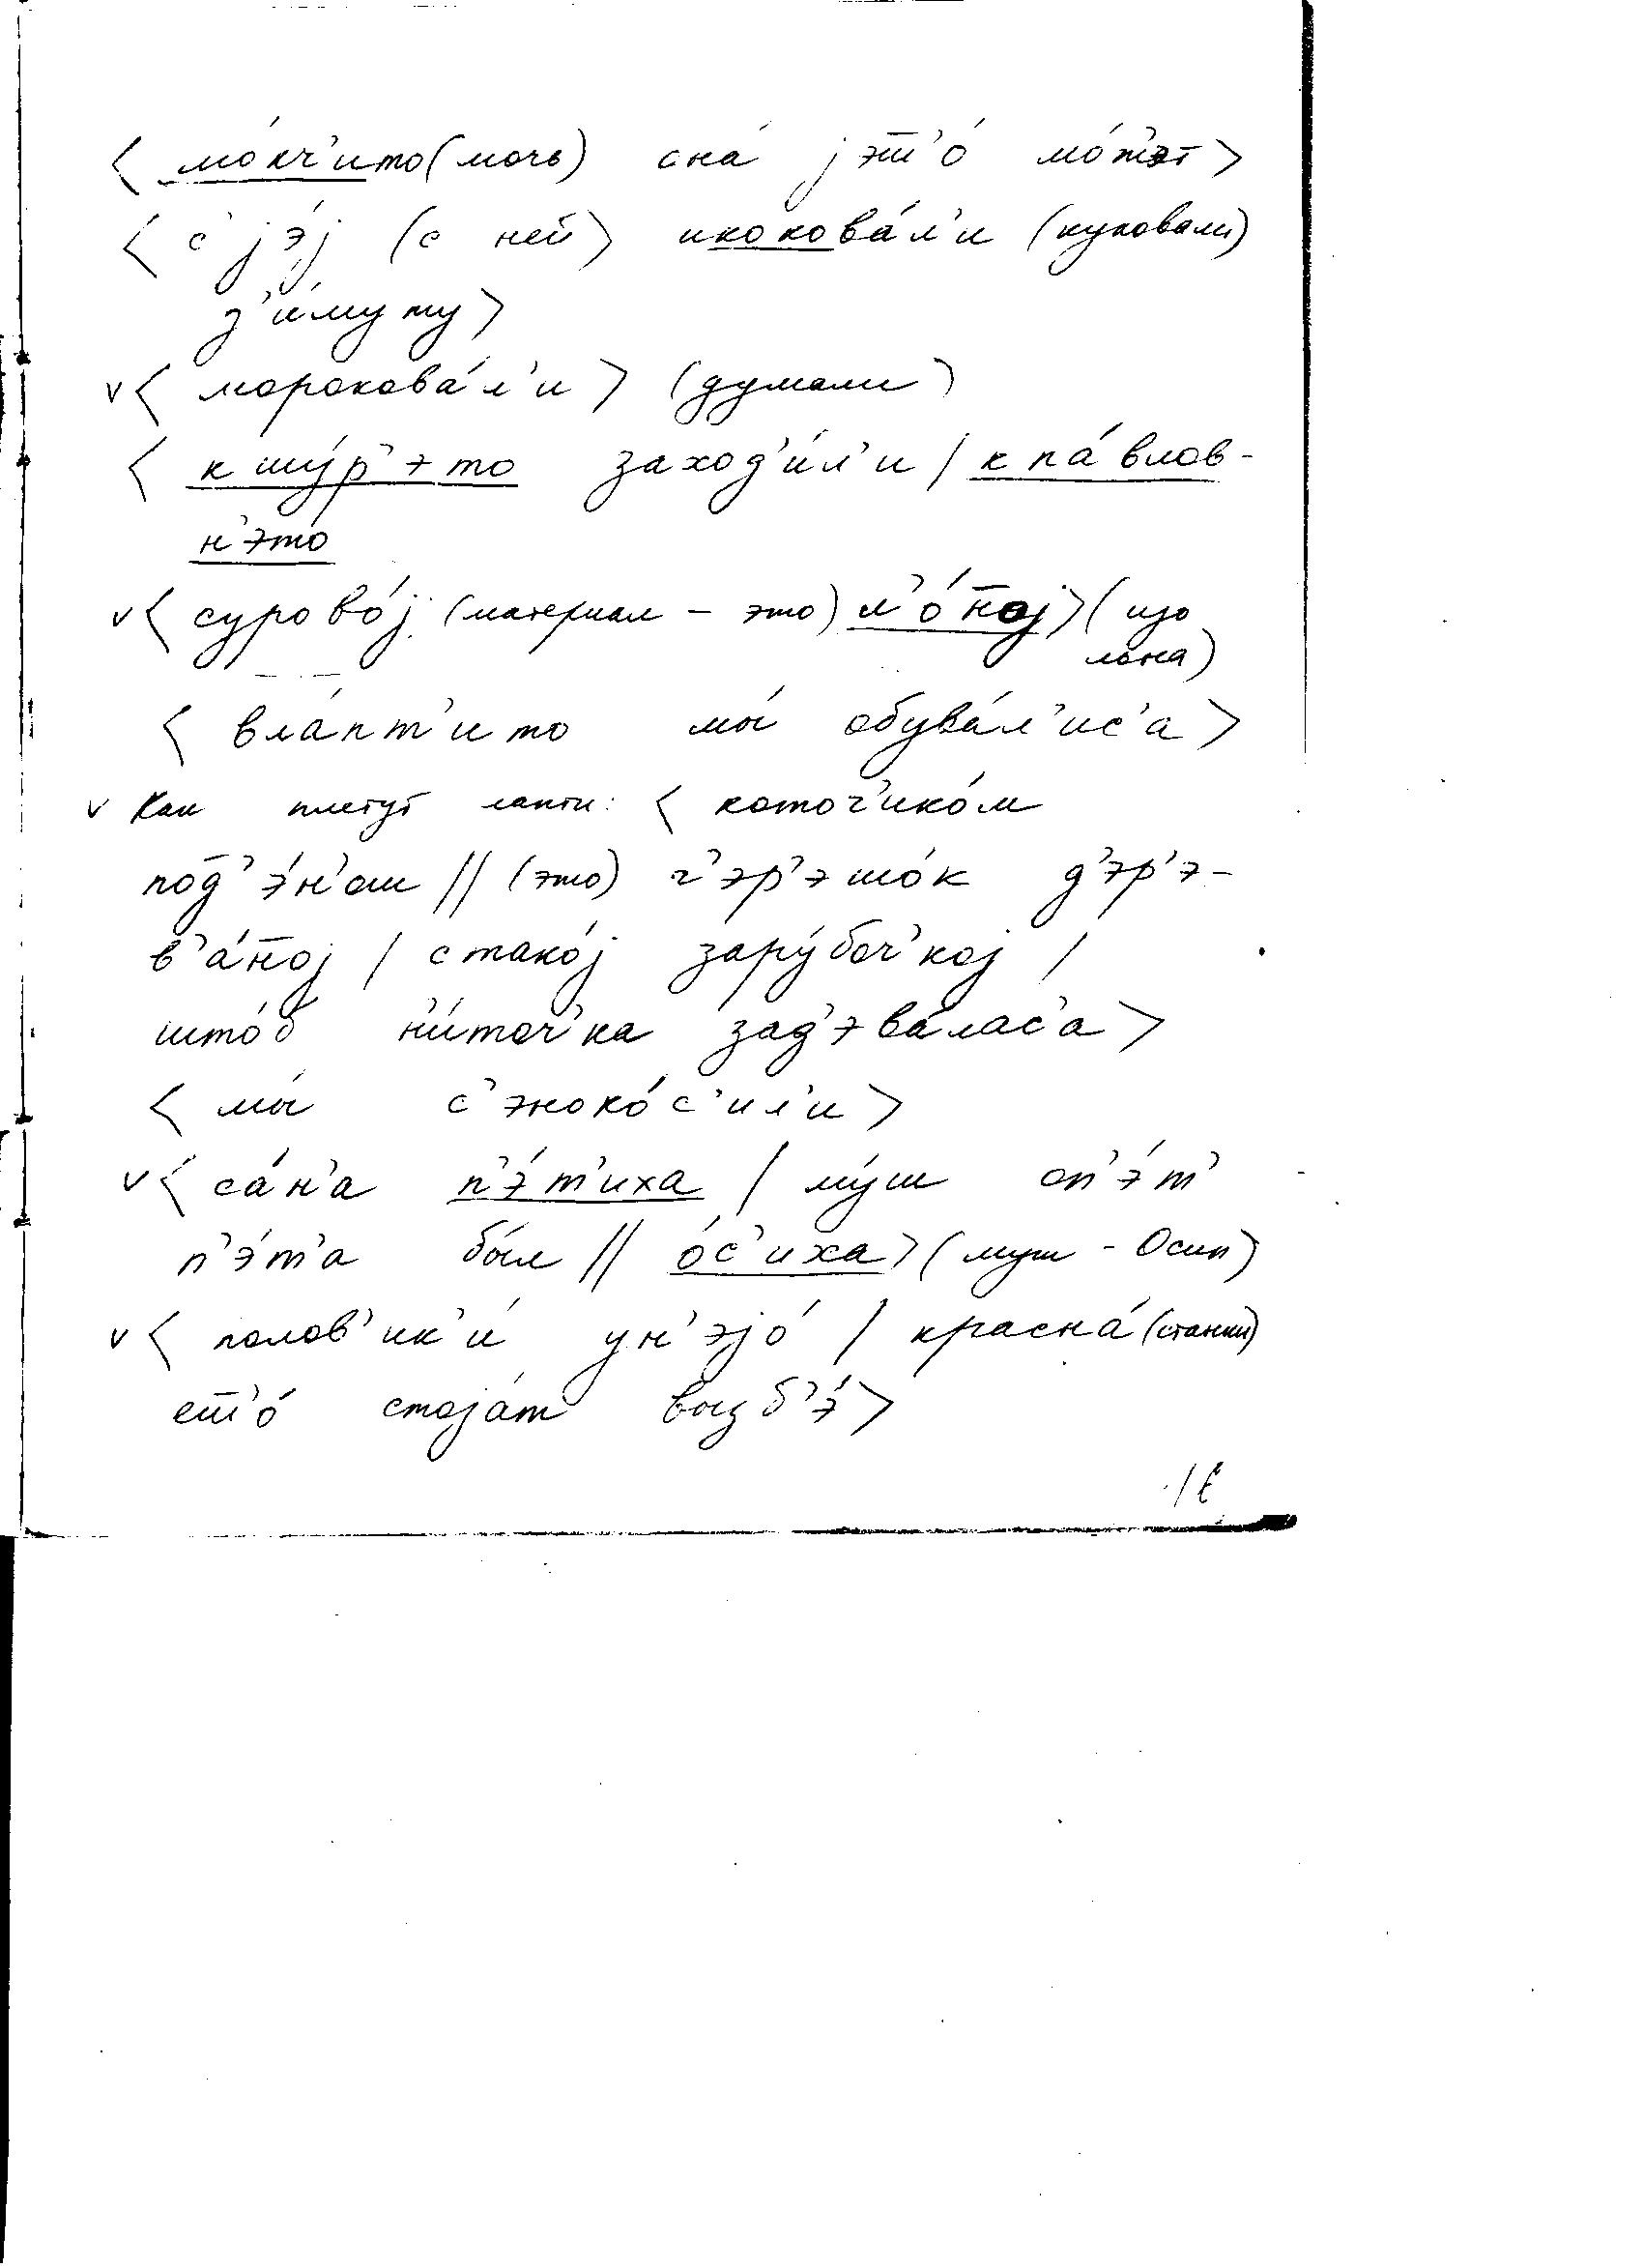 < мо́кч'ито (мочь) она́ јэ̄т'о́ мо́т̄эт >
< с'јэ́ј (с ней) икокова́л'и (куковали)
з'и́муту >
v < морокова́л'и > (думали)
< к шу́р'это заход'и́л'и / к па́влов-
н'это́
v < сурово́ј (материал – это) л'о́н̄ој > (изо
льна)
< вла́пт'ито мы́ обува́л'ис'а >
v Как плетут лапти: < коточ'ико́м
под̄'э́н'ош // (это) ч'эр'эшо́к д'эр'э-
в'а́н̄ој / стако́ј зару́боч'кој /
што́б н'и́точ'ка зад'эва́лас'а >
< мы́ с'эноко́с'ил'и >
v < са́н'а п'э́т'иха / му́ш оп'э́т'
п'э́т'а бы́л // о́с'иха > (муж - Осип)
v < полов'ик'и́ ун'эјо́ / красна́ (станки)
ет̄'о́ стоја́т выzб'э́ >